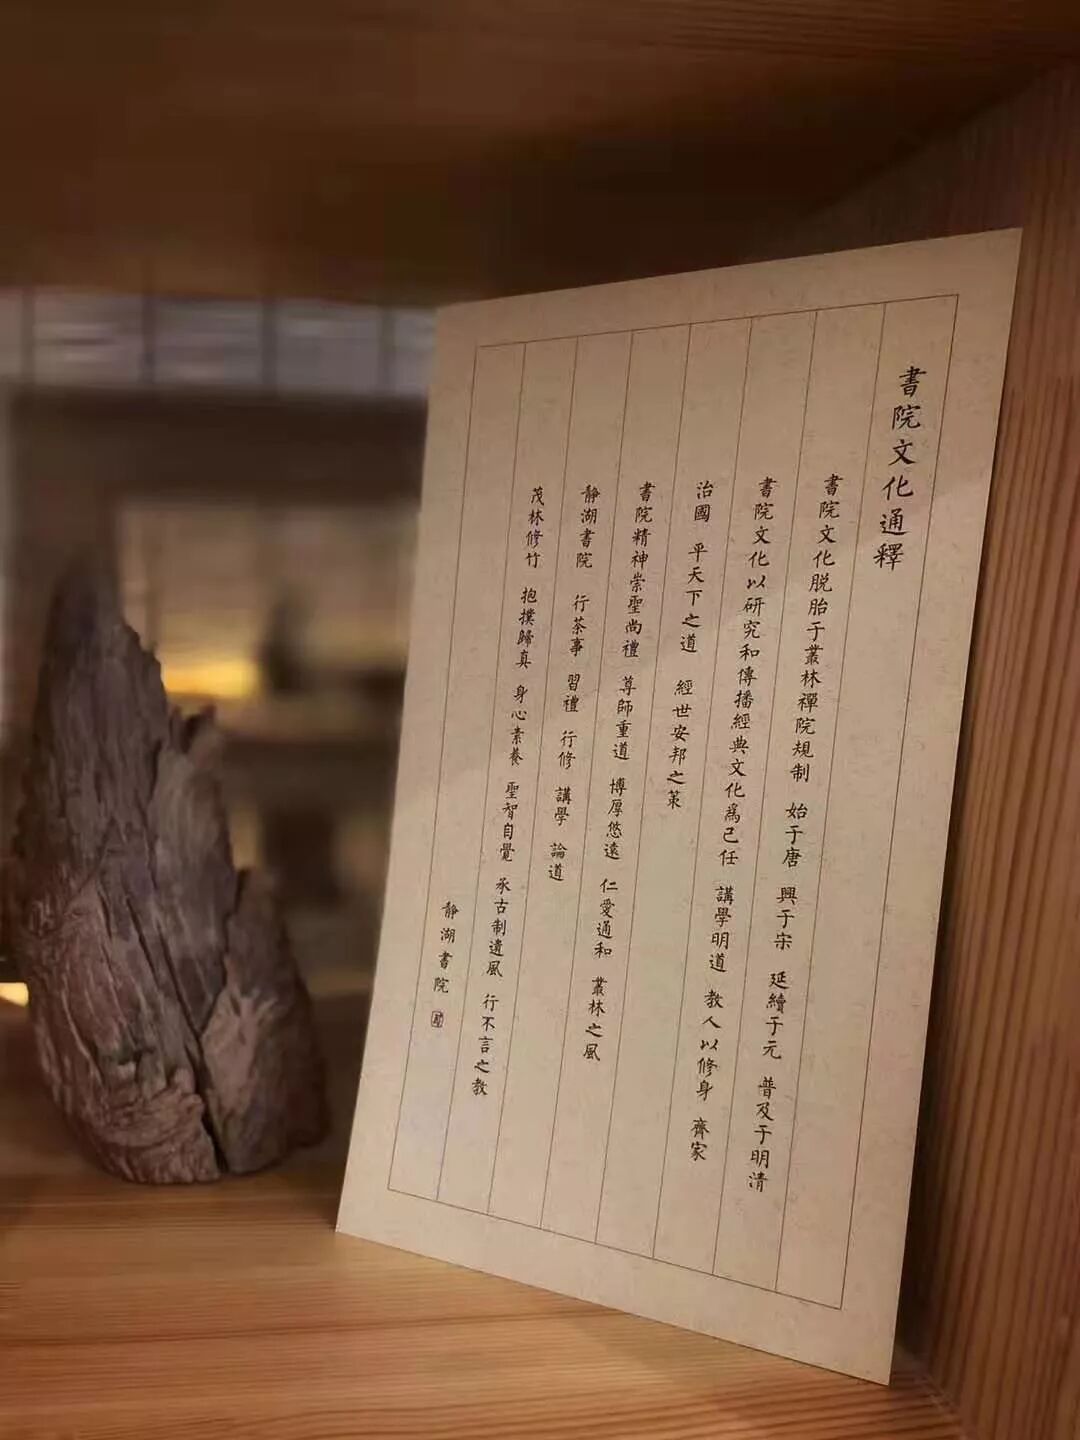 書院文化通釋
書院文化脱胎于叢林禪院規制 始于唐 興于宋 延續于元 普及于明清
書院文化以研究和傳播經典文化爲己任 講學明道 教人以修身 齊家
治國 平天下之道 經世安邦之策
書院精神崇聖尚禮 尊師重道 博厚悠遠 仁愛通和 叢林之風
靜湖書院 行茶事 習禮 行修 講學 論道
茂林修竹 抱撲歸真 身心素養 聖智自覺 承古制遺風 行不言之教
靜湖書院